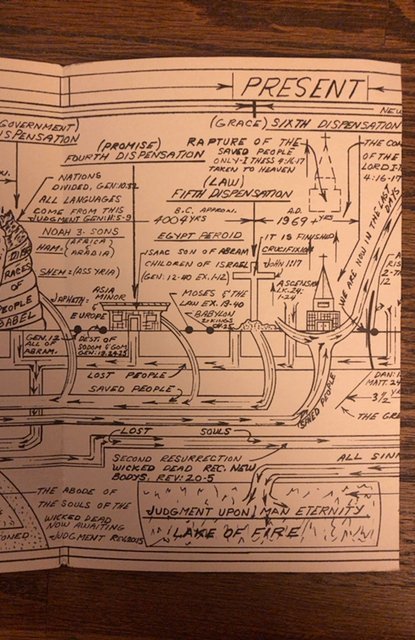 PRESENT
GOVERNMENT)
(GRACE) SIXTH DISPENSATION
(PROMISE)
FOURTH DISPENSATION
RAPTURE OF THE
SAVED PEOPLE
ONLY-I THESS 4:16-17
TAKEN TO HEAVEN
OF THE LORD
4:16-17
NATIONS
DIVIDED, GEN.10:32
ALL LANGUAGES
COME FROM THIS
JUDGMENT GEN.11:5-9
NOAH 3-SONS
HAM:
(AFRICA)
(ARABIA)
SHEM: (ASSYRIA)
JAPHETH:
ASIA
MINOR
EUROPE
(LAW)
FIFTH DISPENSATION
B.C. APPROX.
4004 YRS
A.D.
1969 + YRS
EGYPT PEROID
ISAAC SON OF ABRAM
CHILDREN OF ISRAEL
(GEN. 12-40 EX.1-12)
IT IS FINISHED
CRUCIFIXION
JOHN
ASCENSION
LK.24:
1-24
MOSES & THE
LAW EX. 18-40
BABYLON
WE ARE NOW IN THE LAST
DAYS
RACES
OF
PEOPLE
BABEL
GEN. 12
CALL OF
ABRAM.
DEST. OF
SODOM & GOM.
GEN. 18:24-25
LOST PEOPLE
SAVED PEOPLE
SAVED PEOPLE
MATT. 24
3 1/2
THE
LOST SOULS
SECOND RESURRECTION
WICKED DEAD REC. NEW
BODYS. REV. 20-5
THE ABODE OF
THE SOULS OF THE
WICKED DEAD
NOW AWAITING
JUDGMENT
JUDGMENT UPON MAN ETERNITY
LAKE OF FIRE